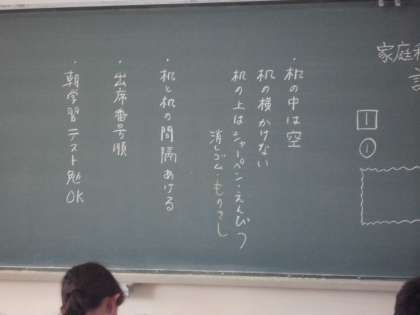 家庭
1
1
・机の中は空
机の横かけない
机の上はシャーペン・えんぴつ
消しゴム・ものさし
・机と机の間隔あける
・出席番号順
・朝学習テスト勉OK